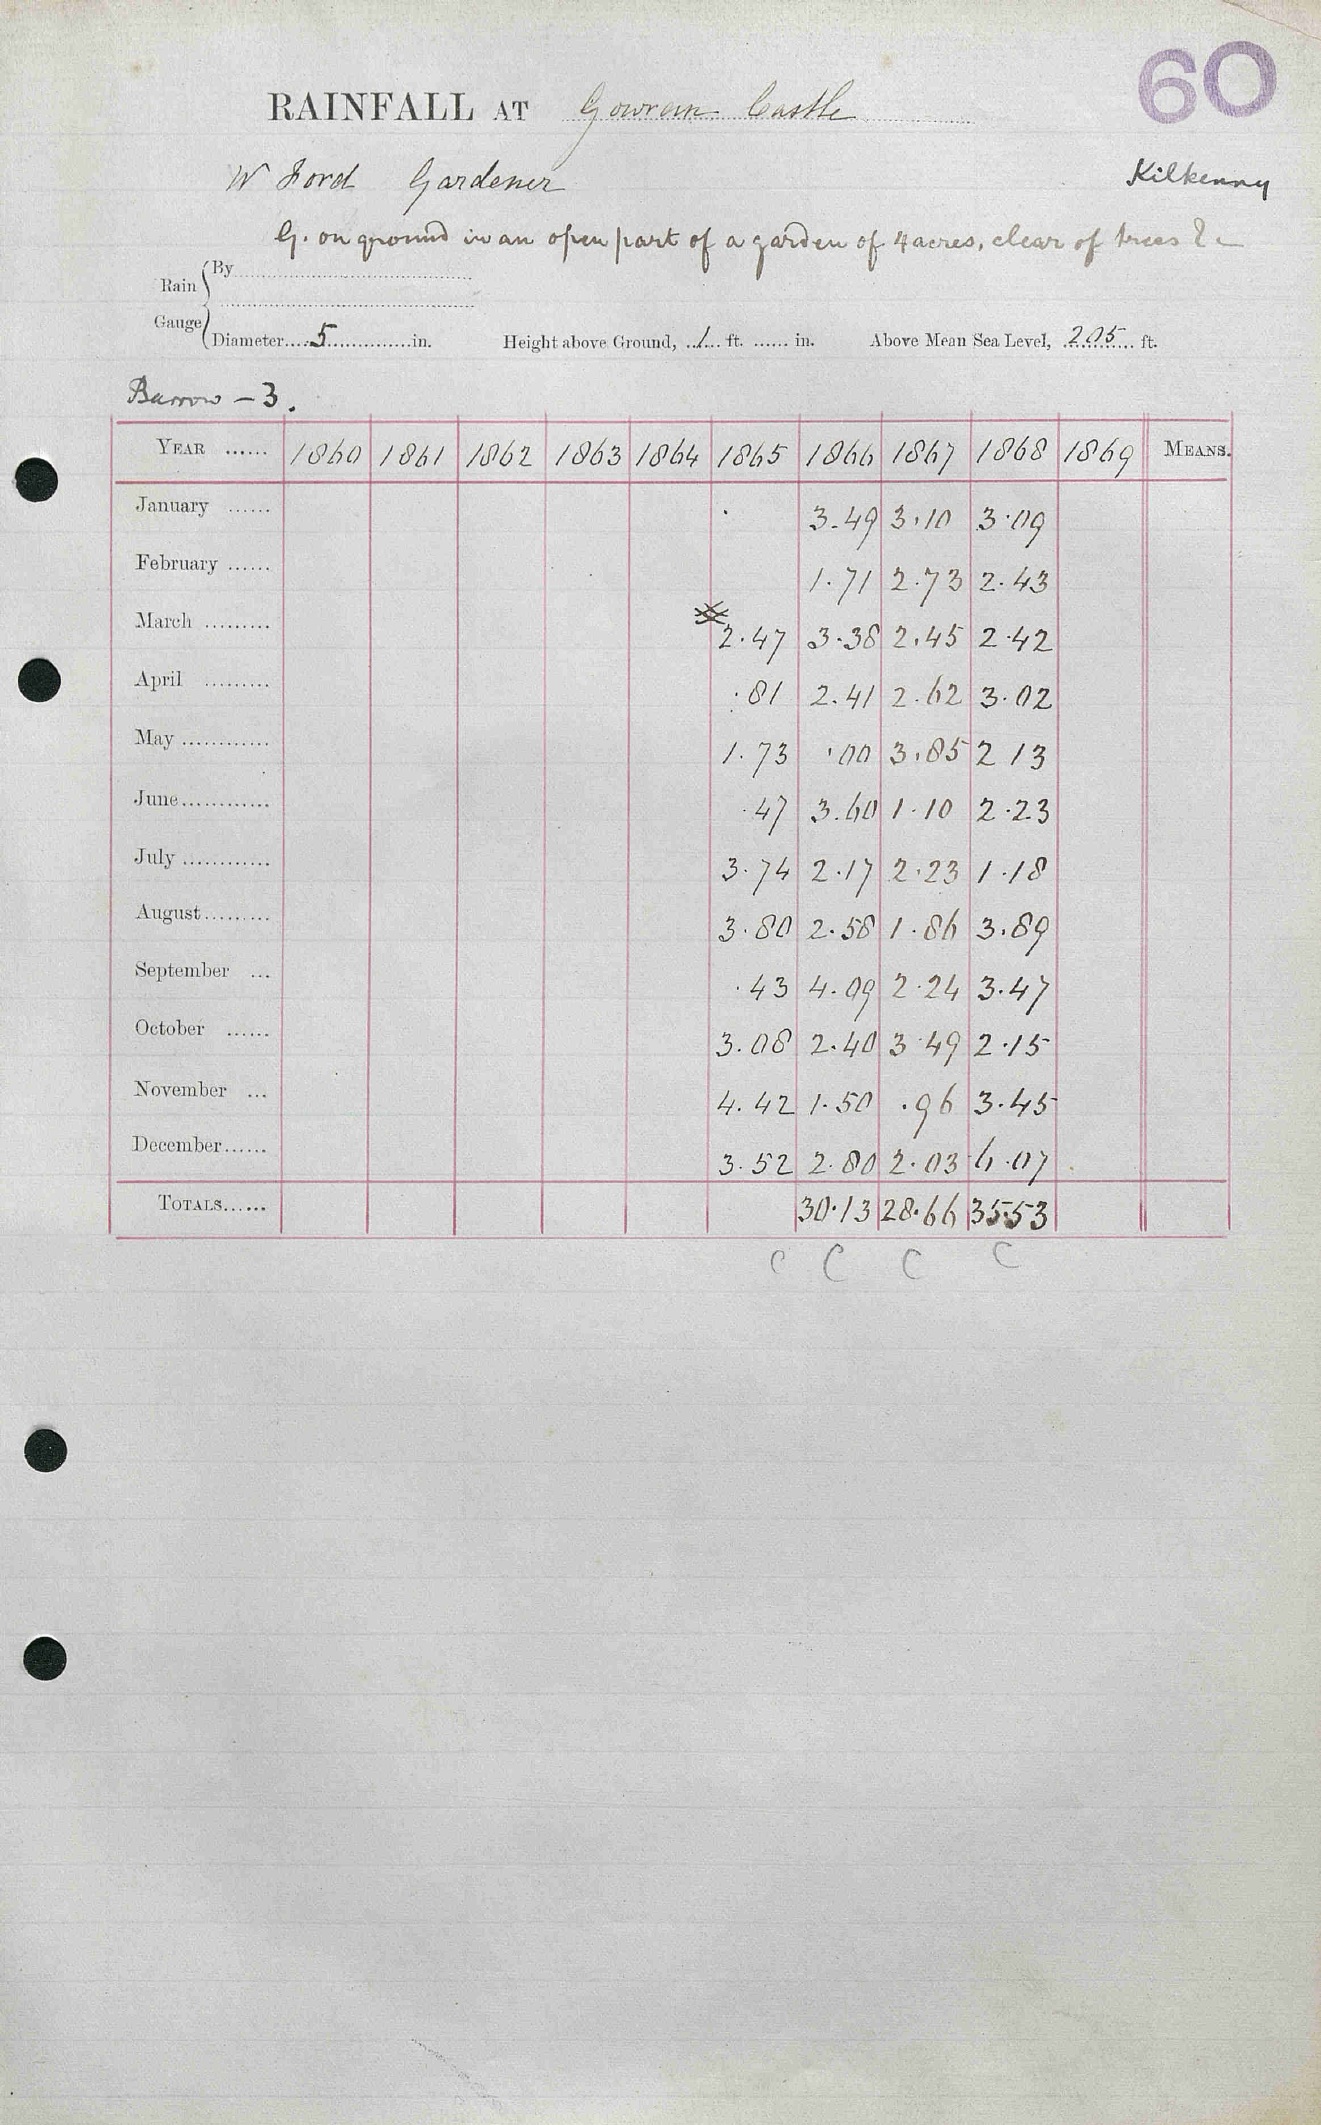 60
RAINFALL AT Gowran Castle
W Ford Gardener
Kilkenny
G. on ground in an open part of a garden of 4 acres, clear of trees &c
Rain Gauge { By
Diameter 5 in. Height above Ground, 1 ft. in. Above Mean Sea Level, 205 ft.
Barrow - 3.
YEAR 1860 1861 1862 1863 1864 1865 1866 1867 1868 1869 MEANS.
January 3.49 3.10 3.09
February 1.71 2.73 2.43
March 2.47 3.38 2.45 2.42
April .81 2.41 2.62 3.02
May 1.73 .00 3.85 2 13
June .47 3.60 1.10 2.23
July 3.74 2.17 2.23 1.18
August 3.80 2.58 1.86 3.89
September .43 4.09 2.24 3.47
October 3.08 2.40 3 49 2.15
November 4.42 1.50 .96 3.45
December 3.52 2.80 2.03 6.07
TOTALS 30.13 28.66 35.53
C C C C